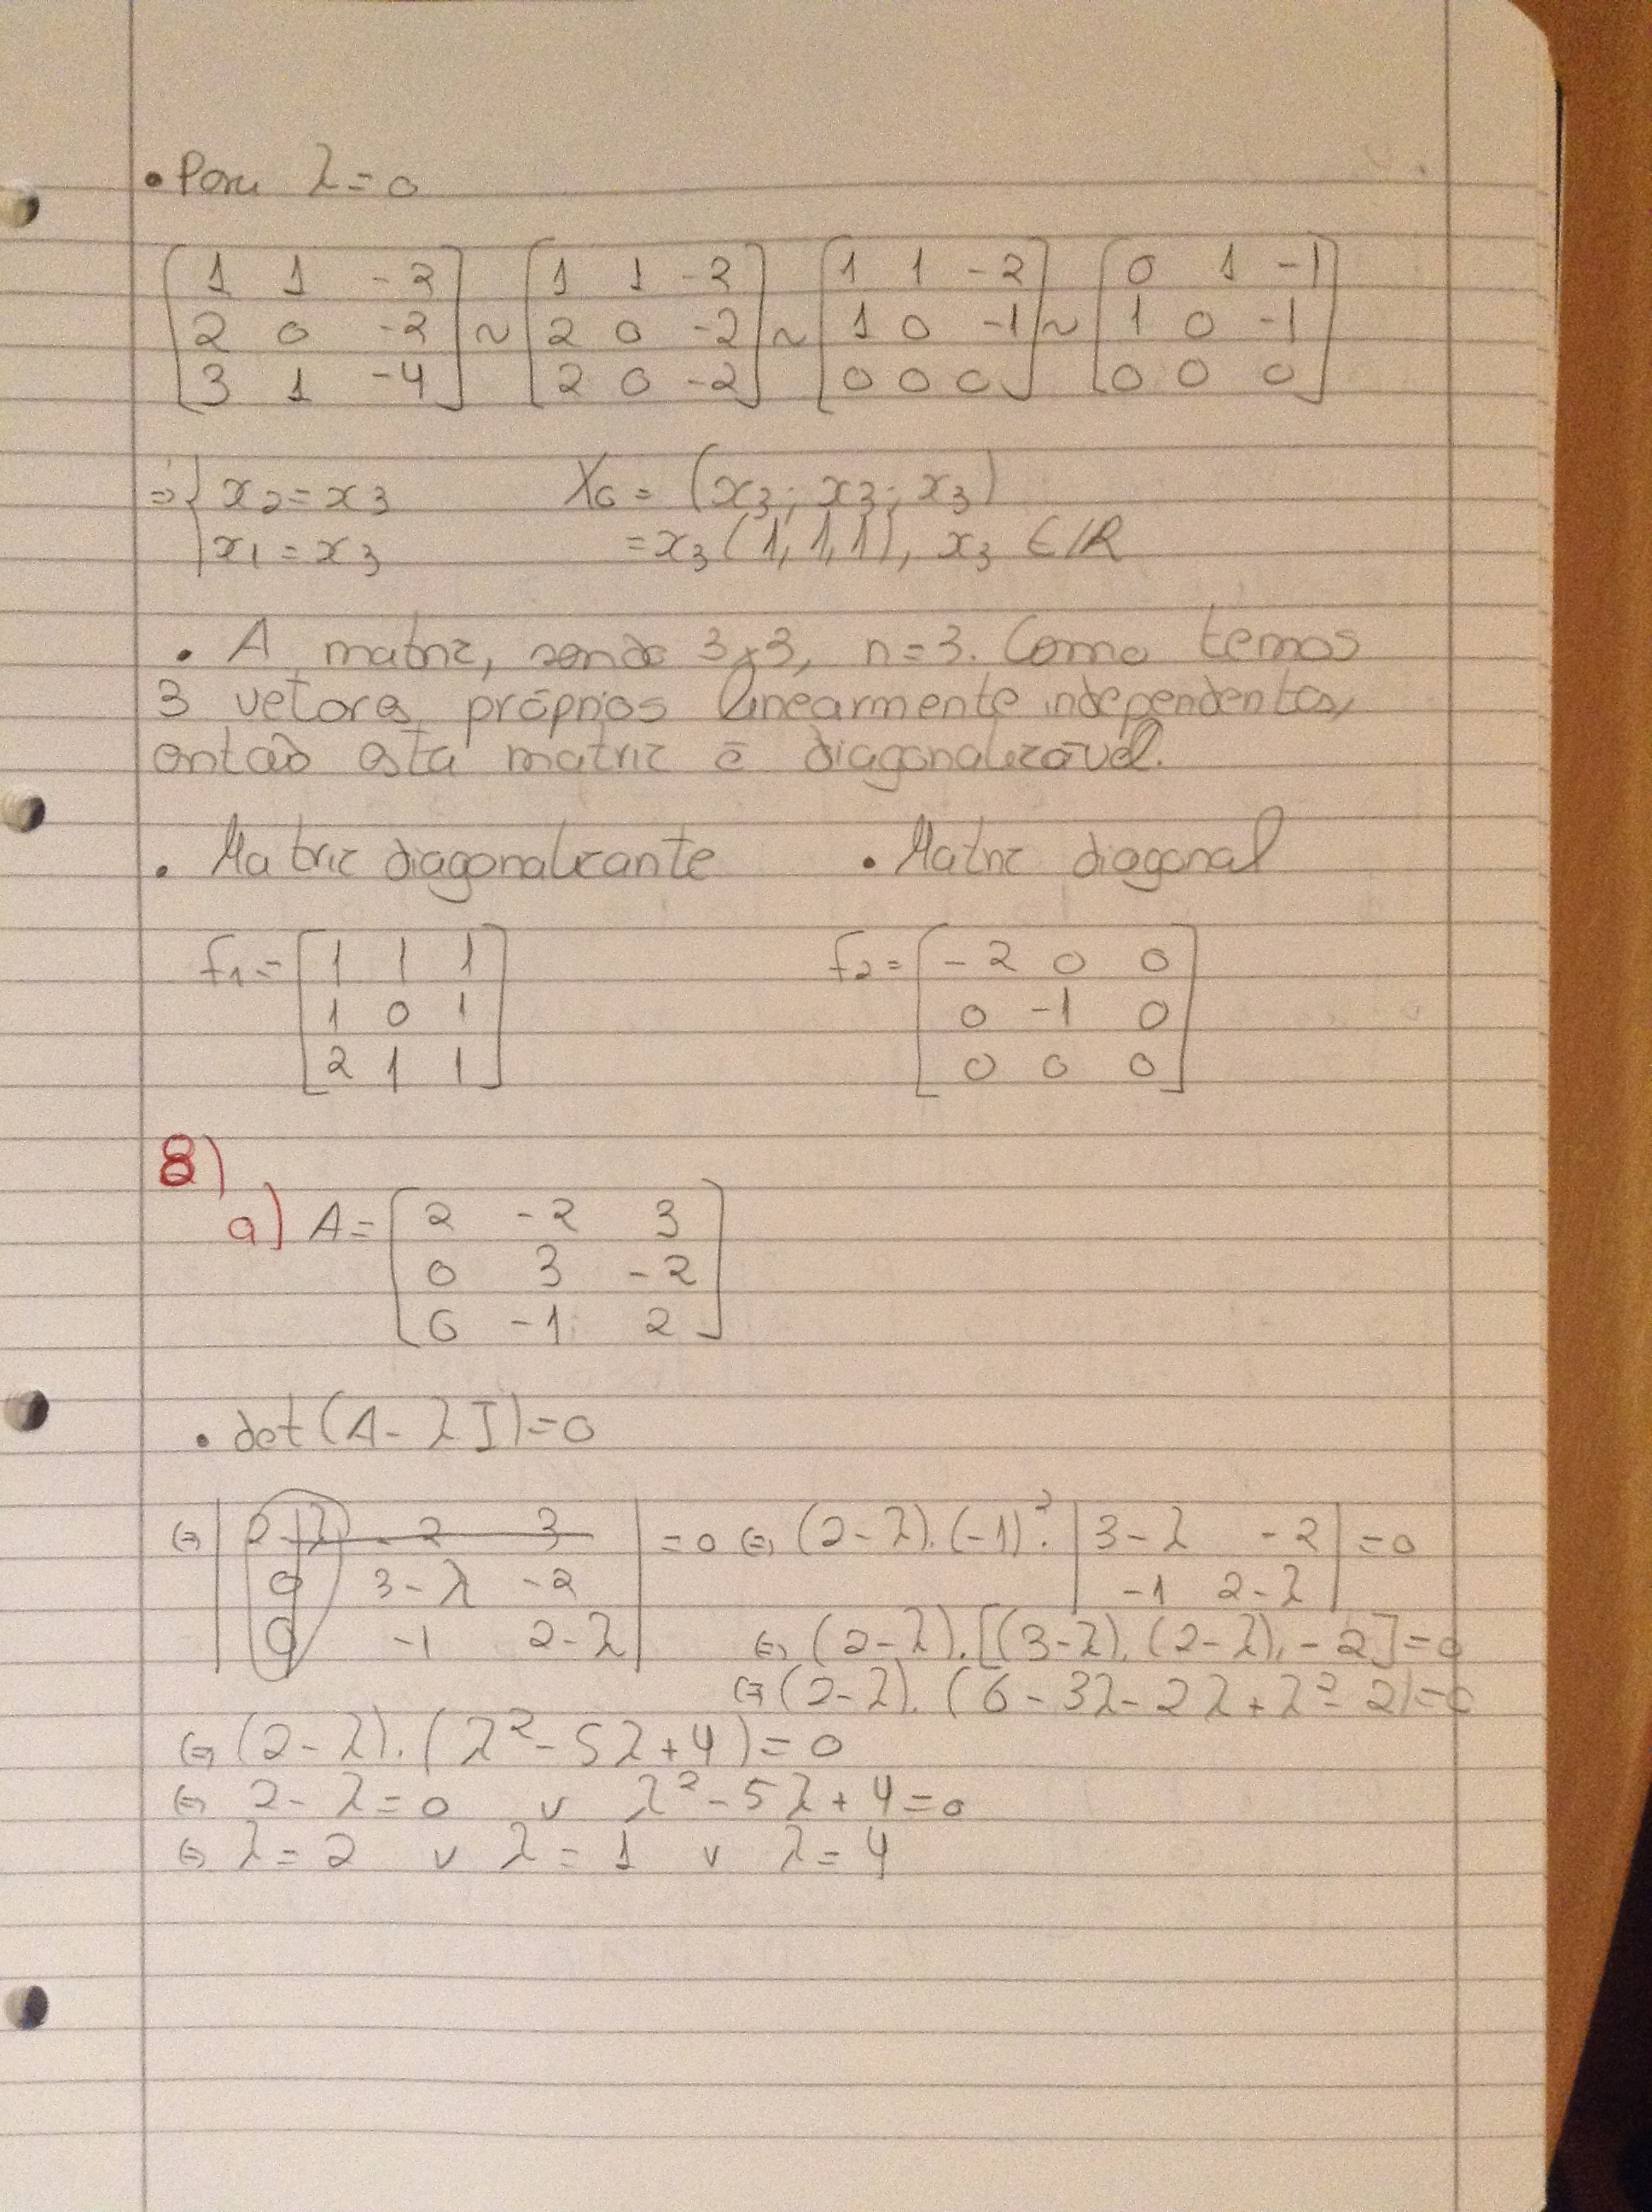 • Para λ=0
[1 1 -2; 2 0 -2; 3 1 -4] ~ [1 1 -2; 2 0 -2; 2 0 -2] ~ [1 1 -2; 1 0 -1; 0 0 0] ~ [0 1 -1; 1 0 -1; 0 0 0]
⇒ { x2 = x3 X0 = (x3; x3; x3)
x1 = x3 = x3 (1,1,1), x3 ∈ IR
• A matriz, sendo 3x3, n=3. Como temos
3 vetores próprios linearmente independentes,
então esta matriz é diagonalizável.
• Matriz diagonalizante • Matriz diagonal
f1 = [1 1 1; 1 0 1; 2 1 1] f2 = [-2 0 0; 0 -1 0; 0 0 0]
8)
a) A = [2 -2 3; 0 3 -2; 0 -1 2]
• det(A - λI)=0
⇔ |2-λ -2 3; 0 3-λ -2; 0 -1 2-λ| = 0 ⇔ (2-λ).(-1)².|3-λ -2; -1 2-λ| = 0
⇔ (2-λ).[(3-λ).(2-λ) - 2] = 0
⇔ (2-λ).(6 - 3λ - 2λ + λ² - 2) = 0
⇔ (2-λ).(λ² - 5λ + 4) = 0
⇔ 2-λ = 0 v λ² - 5λ + 4 = 0
⇔ λ = 2 v λ = 1 v λ = 4